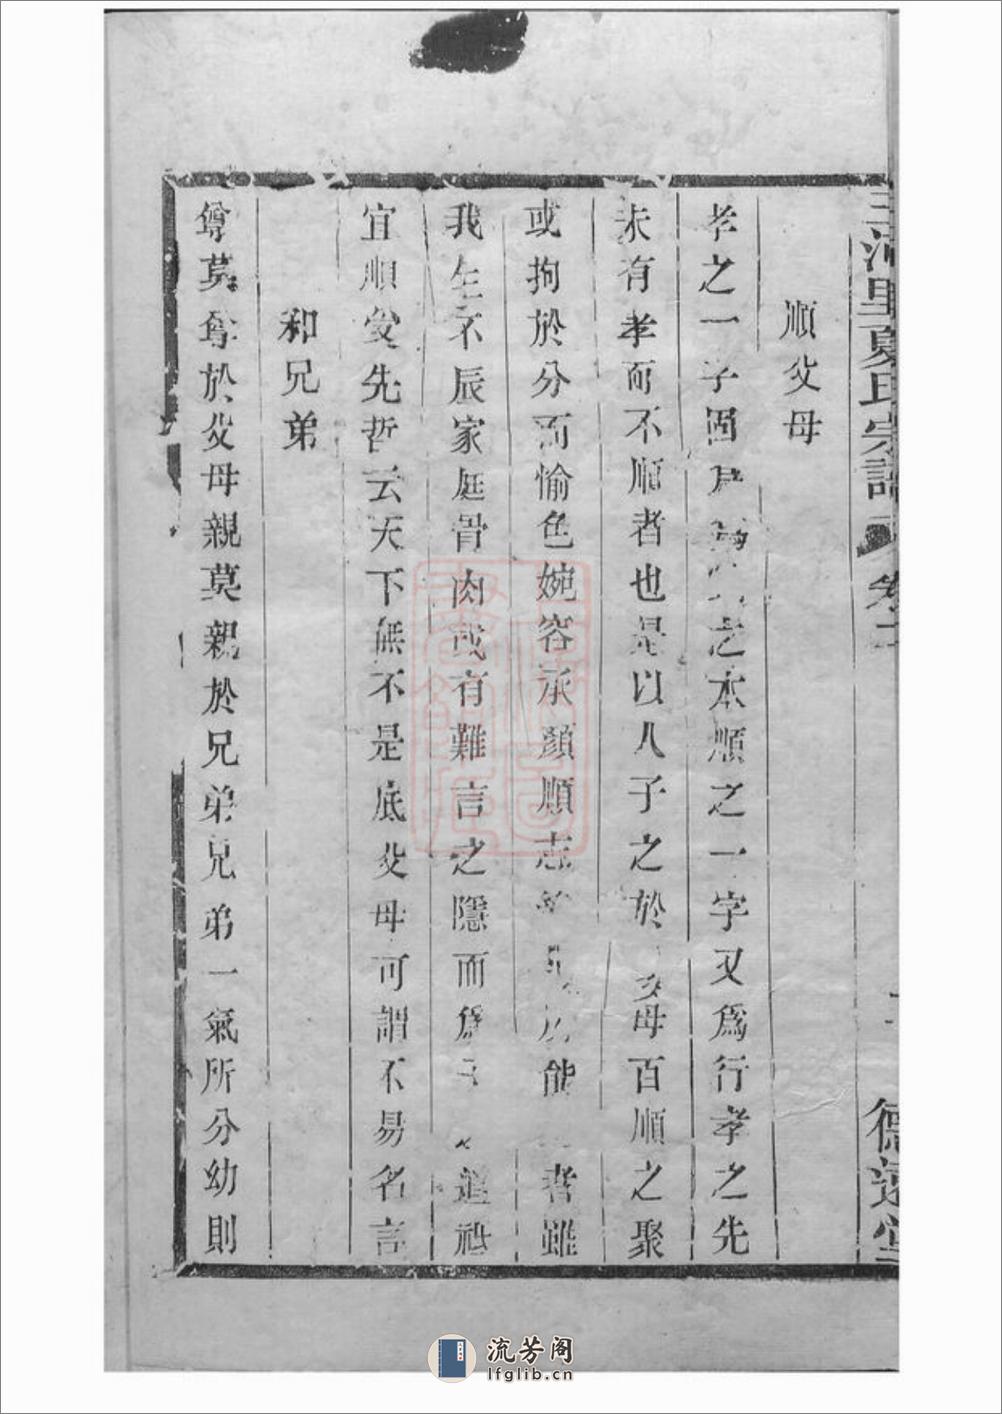 三河里夏氏宗譜 卷二 德遠堂
順父母
孝之一字固爲之本順之一字又爲行孝之先
未有孝而不順者也是以人子之於父母百順之聚
或拘於分而愉色婉容承顏順志能者雖
我生不辰家庭骨肉或有難言之隱而爲道祗
宜順受先哲云天下無不是底父母可謂不易名言
和兄弟
尊莫尊於父母親莫親於兄弟兄弟一氣所分幼則
流芳阁
lfglib.cn